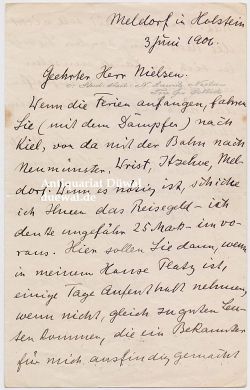 Meldorf in Holstein
3 Juni 1906.
Geehrter Herr Nielsen.
Wenn die Ferien anfangen, fahren
Sie (mit dem Dämpfer) nach
Kiel, von da mit der Bahn nach
Neumünster, Wrist, Itzehoe, Mel-
dorf. Wenn es nötig ist, schicke
ich Ihnen das Reisegeld - ich
denke ungefähr 25 Mark - im vo-
raus. Hier sollen Sie dann, wenn
in meinem Hause Platz ist,
einige Tage Aufenthalt nehmen,
wenn nicht, gleich zu guten Leu-
ten kommen, die ein Bekannter
für mich ausfindig gemacht
Antiquariat Düwal
duewal.de